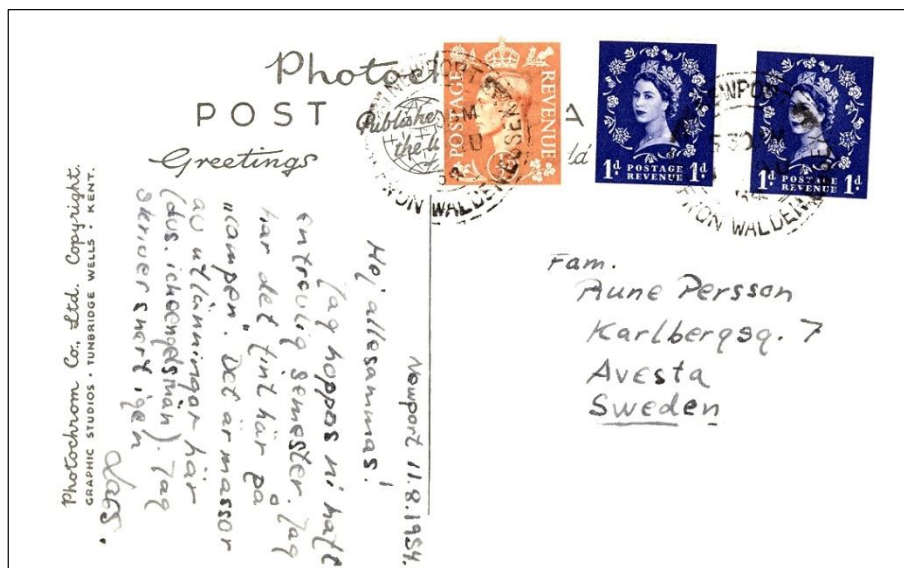 POST
Greetings
POSTAGE
REVENUE
1d. 1d.
POSTAGE
REVENUE
1d. 1d.
POSTAGE
REVENUE
NEWPORT
WALDEN
30 PM
WALDEN
Photochrom Co., Ltd. Copyright.
GRAPHIC STUDIOS · TUNBRIDGE WELLS · KENT.
Newport 11.8.1954.
Hej allesammas!
Jag hoppas ni haft
en trevlig semester. Jag
har det fint här på
"campen". Det är massor
av utlänningar här
(dvs. icke engelsmän). Jag
skriver snart igen
Lars.
Fam.
Rune Persson
Karlbergsg. 7
Avesta
Sweden